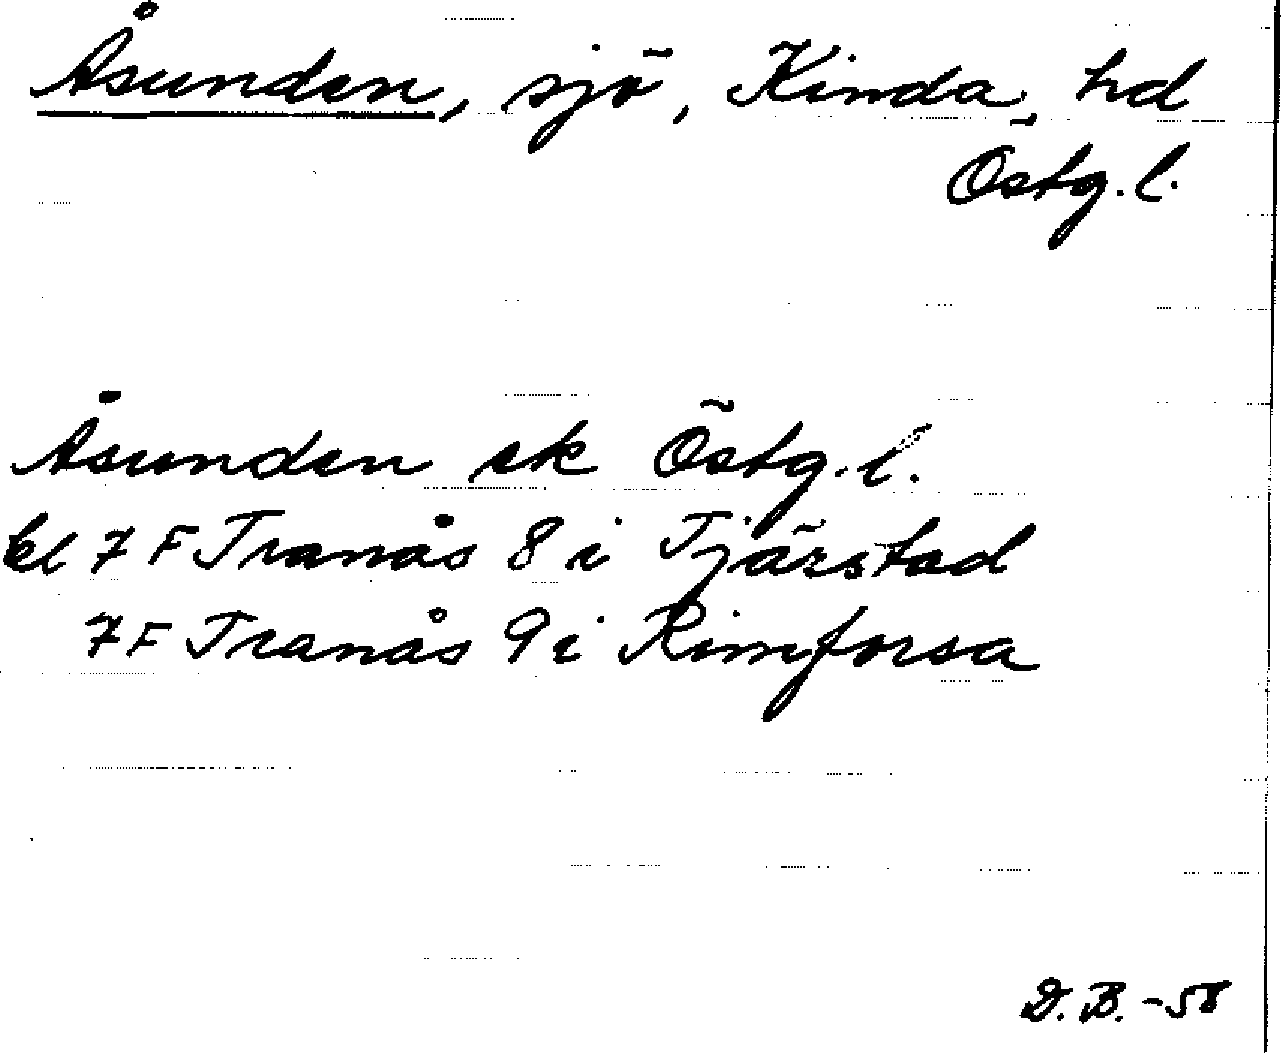 Åsunden, sjö, Kinda hd
Östg. l.
Åsunden ek Östg. l.
bl 7 F Tranås 8 i Tjärstad
7 F Tranås 9 i Rimforsa
D. B. -58